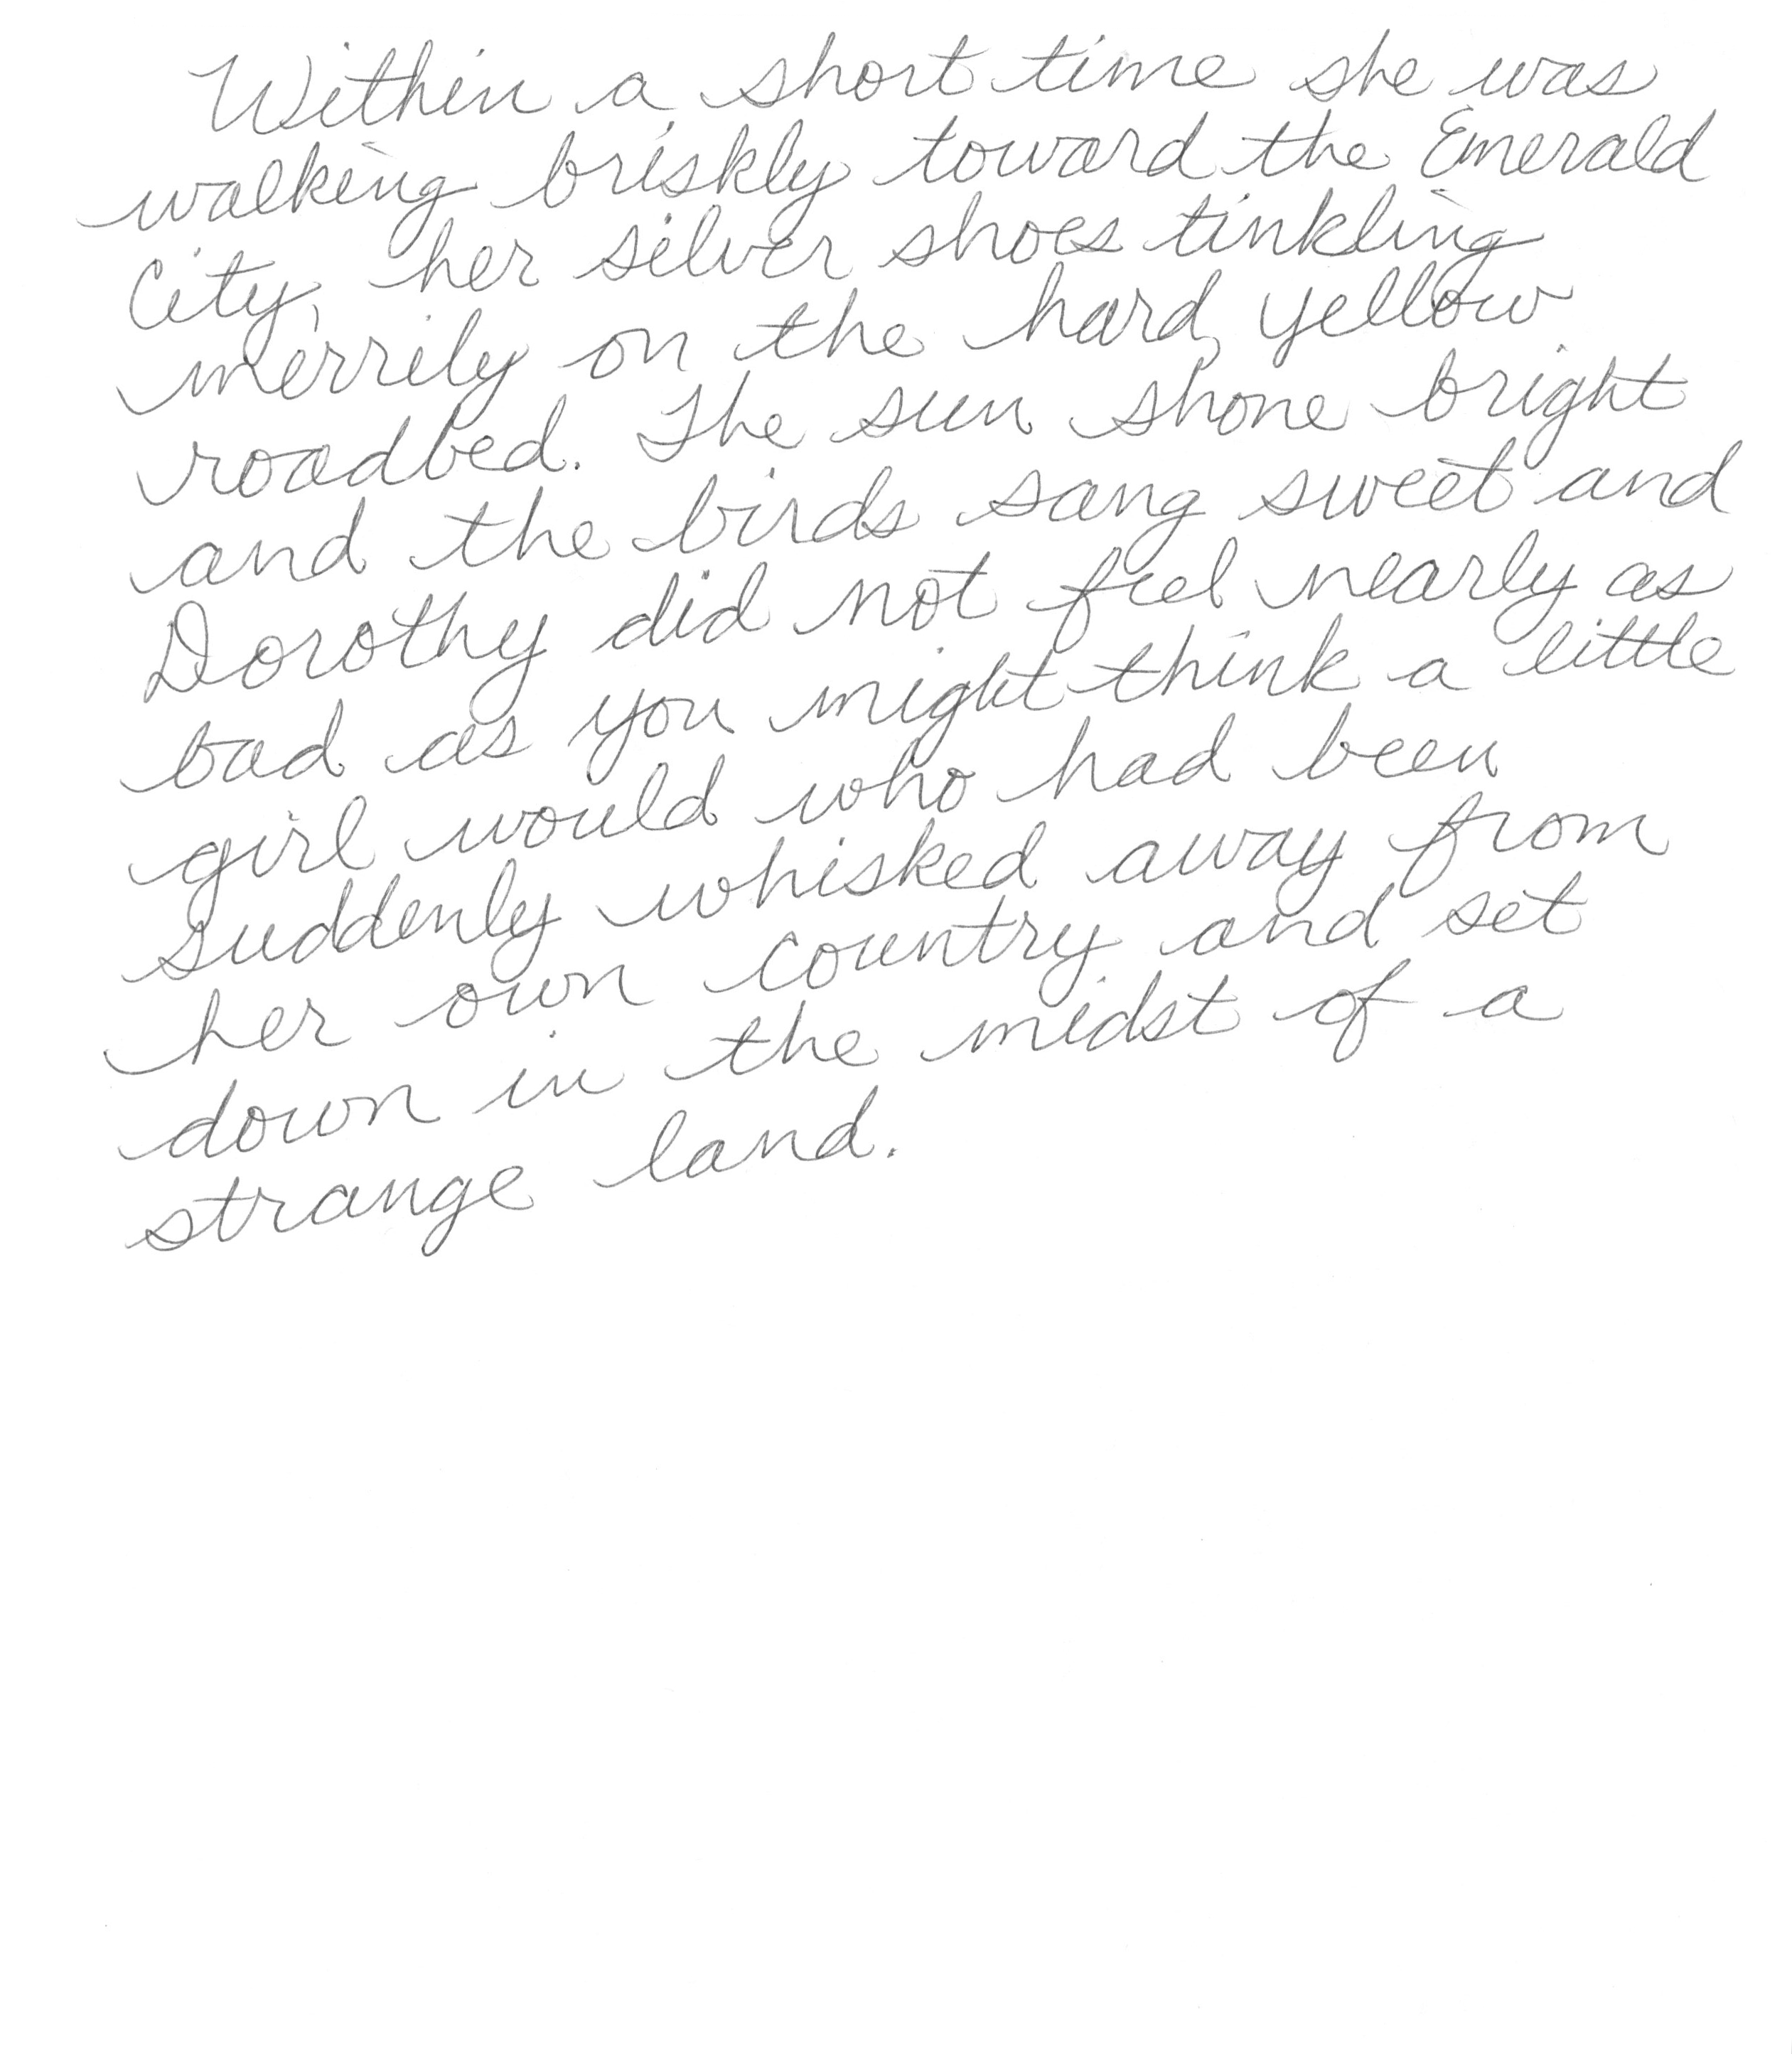 Within a short time she was
walking briskly toward the Emerald
City, her silver shoes tinkling
merrily on the hard, yellow
roadbed. The sun shone bright
and the birds sang sweet and
Dorothy did not feel nearly as
bad as you might think a little
girl would who had been
suddenly whisked away from
her own country and set
down in the midst of a
strange land.